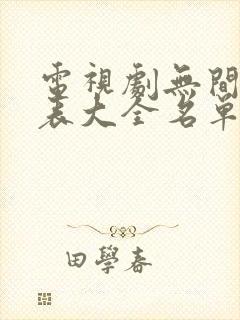 電視劇無間
表大全名單
田學春